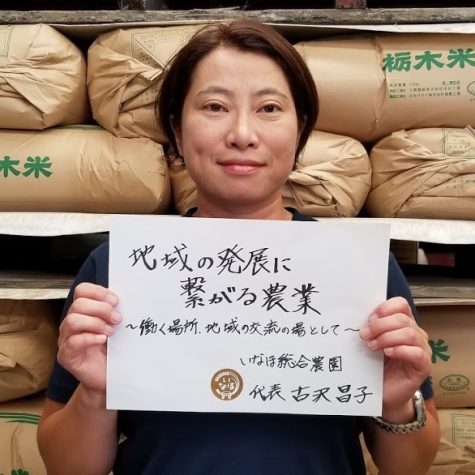 栃木米
栃木米
地域の発展に
繋がる農業
～働く場所、地域の交流の場として～
いなほ総合農園
代表 古沢昌子
いなほ